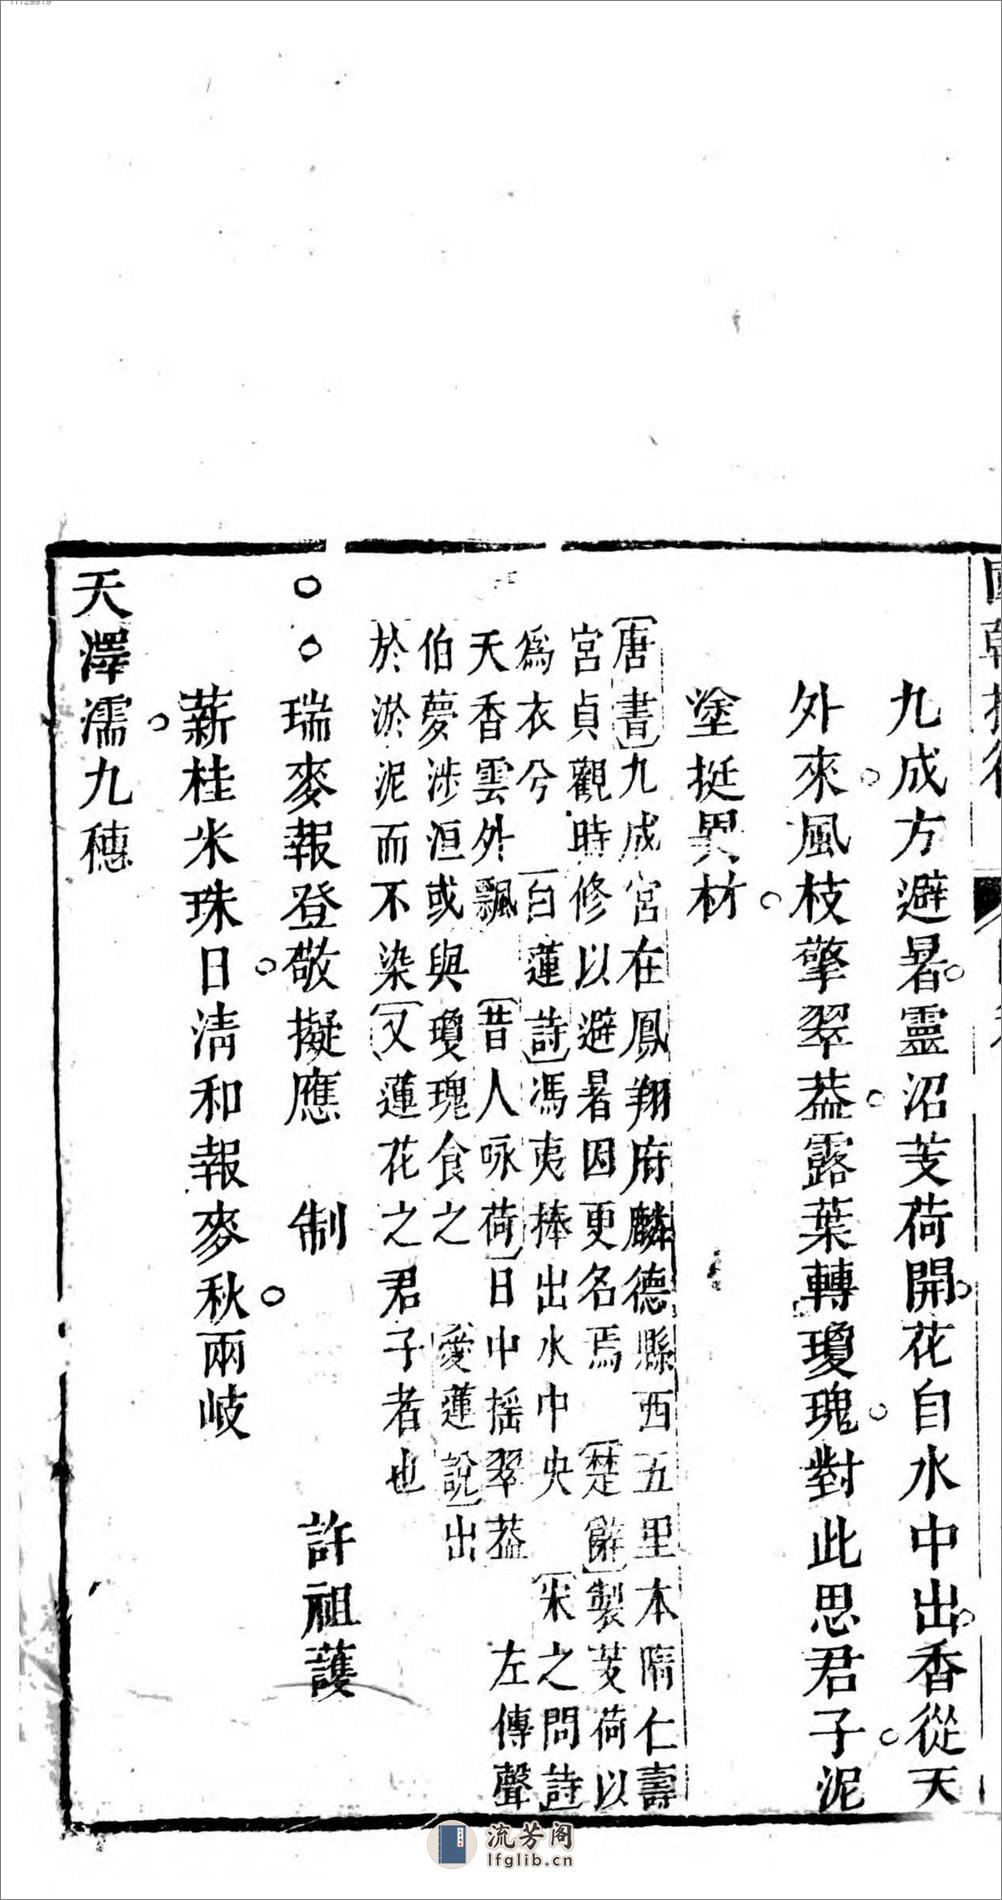 九成方避暑靈沼芰荷開花自水中出香從天
外來風枝擎翠葢露葉轉瓊瑰對此思君子泥
塗挺異材
唐書九成宮在鳳翔府麟德縣西五里本隋仁壽
宮貞觀時修以避暑因更名焉 楚辭製芰荷以
為衣兮 白蓮詩馮夷捧出水中央 宋之問詩
天香雲外飄 昔人咏荷日中摇翠葢 左傳聲
伯夢涉洹或與瓊瑰食之 愛蓮說出
於淤泥而不染又蓮花之君子者也
○○瑞麥報登敬擬應 制 許祖䕶
薪桂米珠日清和報麥秋兩岐
天澤濡九穗
流芳阁
lfglib.cn